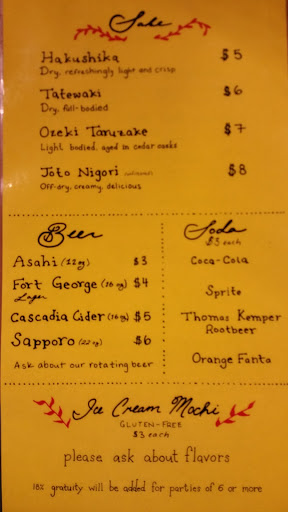 Sake
Hakushika $5
Dry, refreshingly light and crisp
Tatewaki $6
Dry, full-bodied
Ozeki Taruzake $7
Light bodied, aged in cedar casks
Joto Nigori $8
Off-dry, creamy, delicious
Beer
Asahi (12 oz) $3
Fort George (16 oz) $4
Lager
Cascadia Cider (16 oz) $5
Sapporo (22 oz) $6
Ask about our rotating beer
Soda
$3 each
Coca-Cola
Sprite
Thomas Kemper
Rootbeer
Orange Fanta
Ice Cream Mochi
GLUTEN-FREE
$3 each
please ask about flavors
18% gratuity will be added for parties of 6 or more